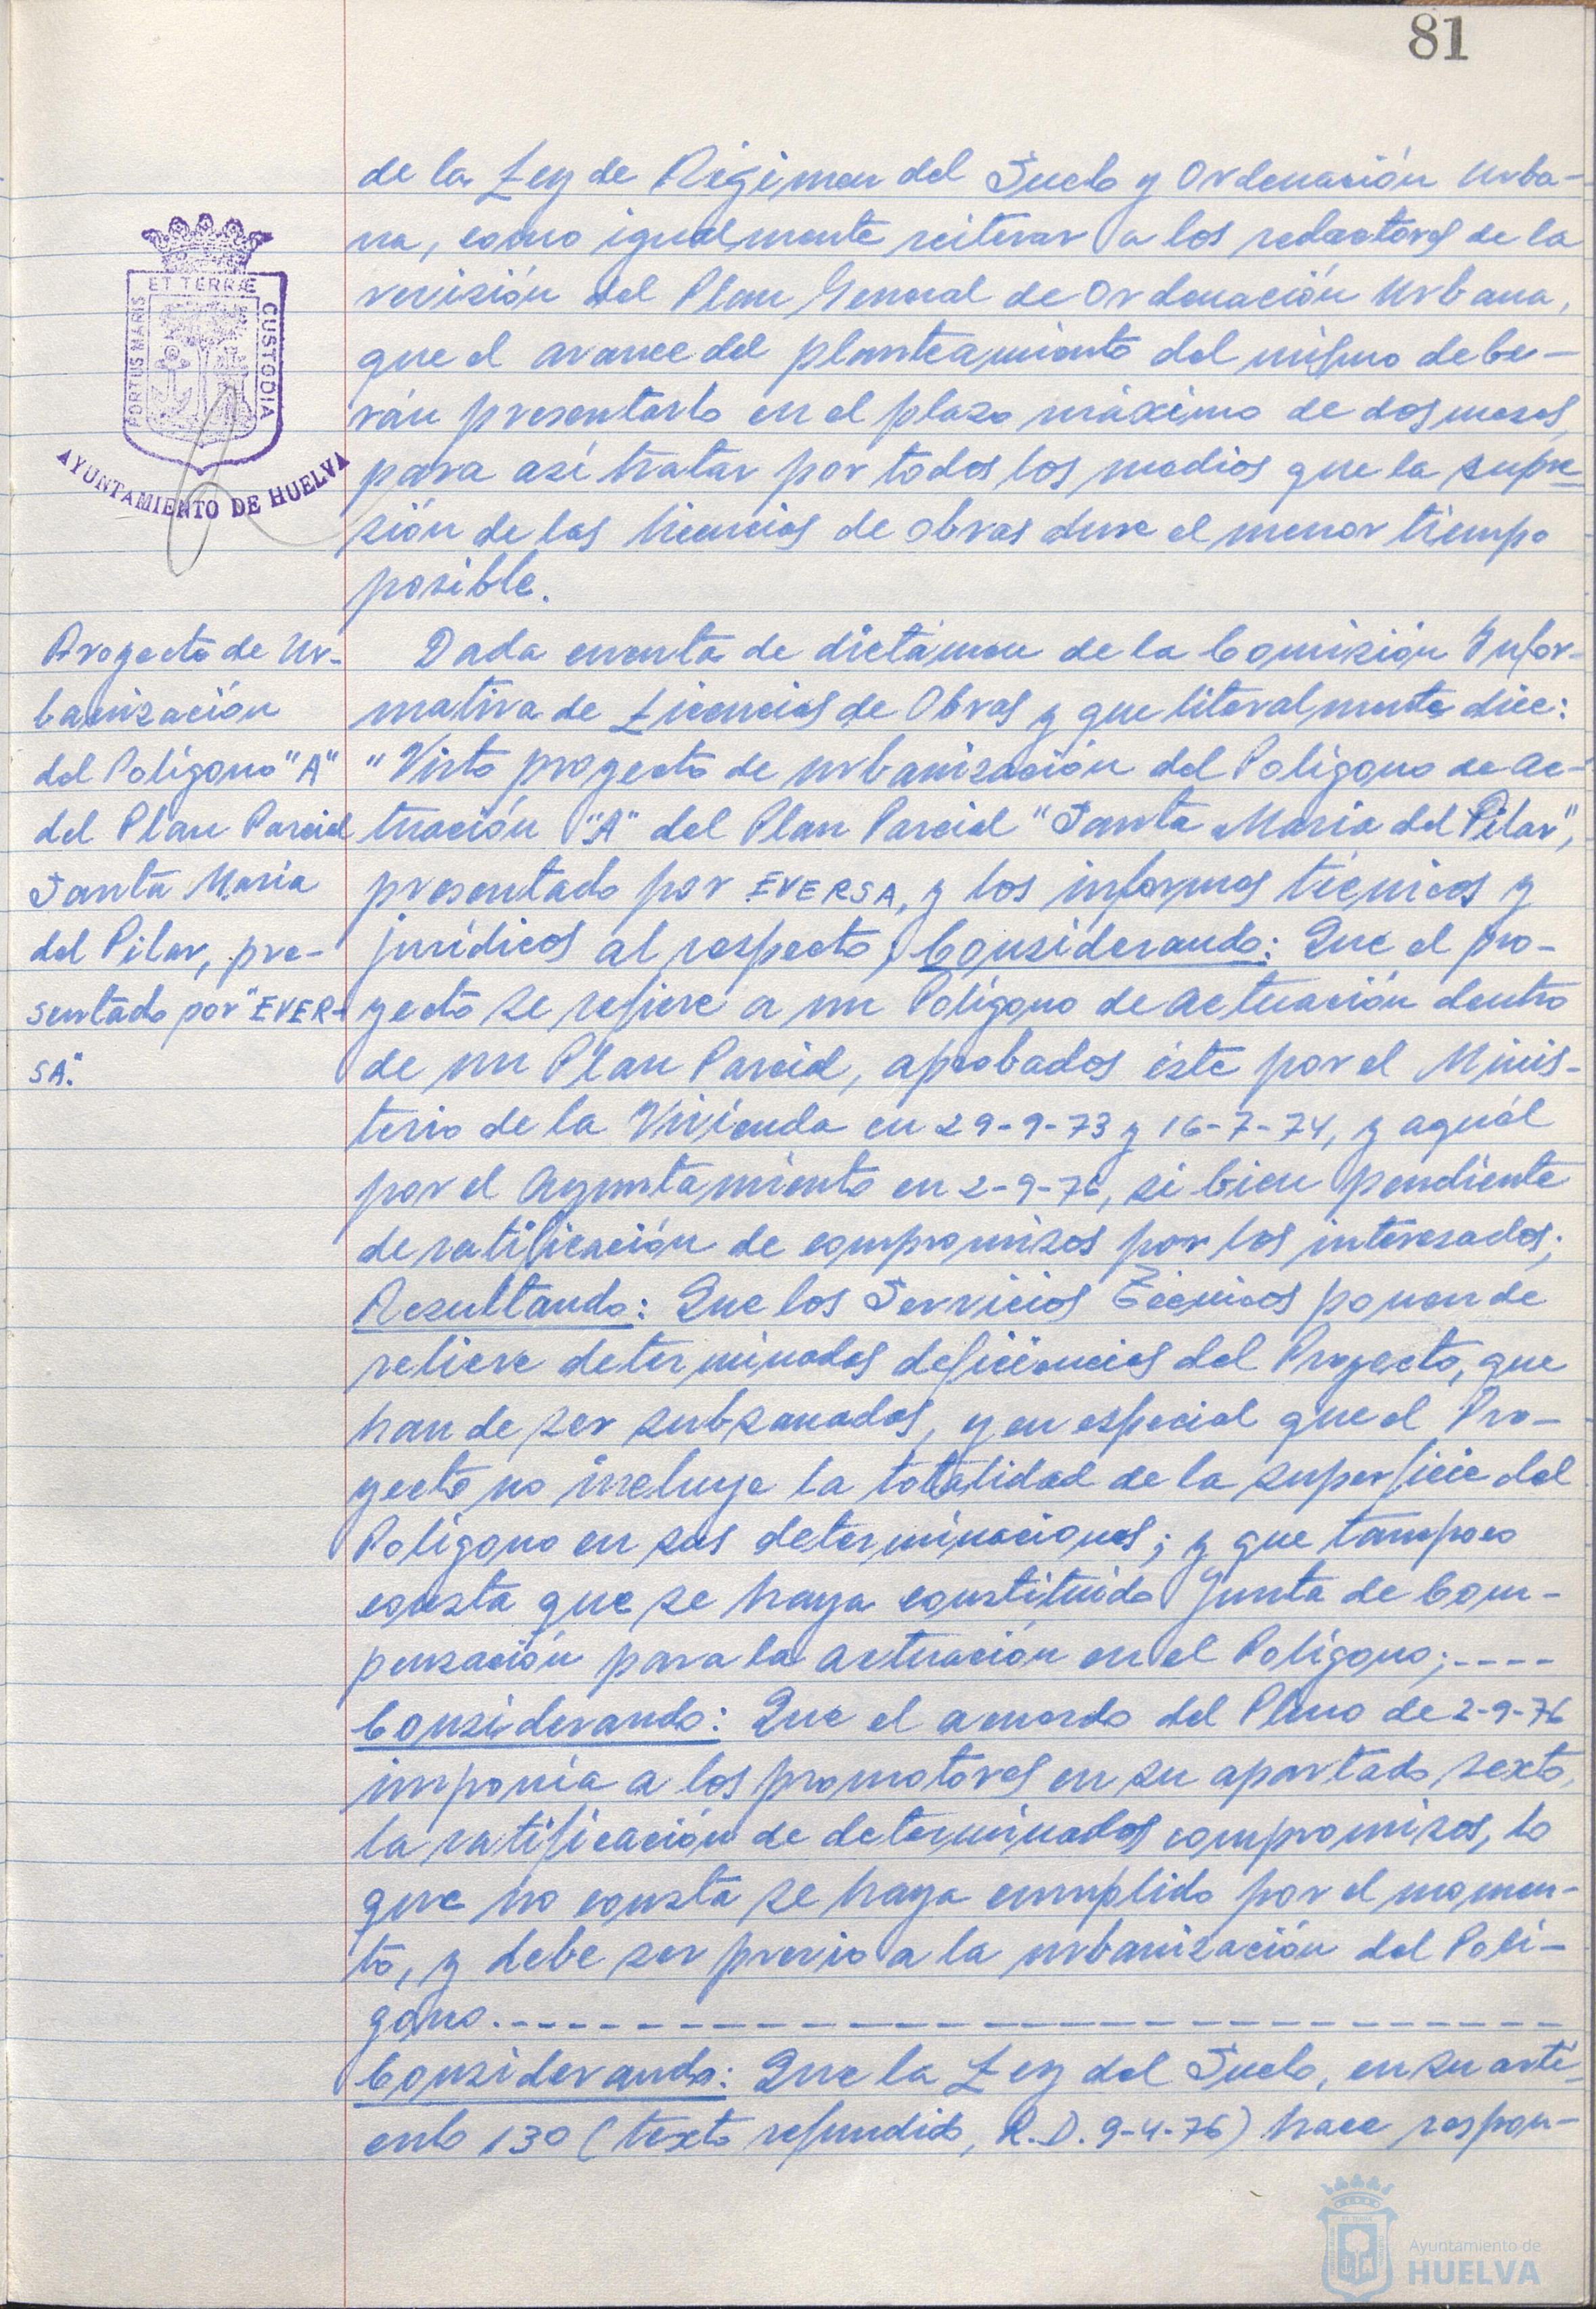 81
de la Ley de Régimen del Suelo y Ordenación Urba-
na, como igualmente reiterar a los redactores de la
revisión del Plan General de Ordenación Urbana,
que el avance del planteamiento del mismo debe-
rán presentarlo en el plazo máximo de dos meses,
para así tratar por todos los medios que la supre-
sión de las licencias de obras dure el menor tiempo
posible.
ET TERRÆ
PORTUS MARIS
CUSTODIA
AYUNTAMIENTO DE HUELVA
Proyecto de Ur-
banización
del Polígono "A"
del Plan Parcial
Santa María
del Pilar, pre-
sentado por "EVER-
SA".
Dada cuenta de dictámen de la Comisión Infor-
mativa de Licencias de Obras y que literalmente dice:
"Visto proyecto de urbanización del Polígono de ac-
tuación "A" del Plan Parcial "Santa María del Pilar",
presentado por EVERSA, y los informes técnicos y
jurídicos al respecto; Considerando: Que el pro-
yecto se refiere a un Polígono de actuación dentro
de un Plan Parcial, aprobados éste por el Minis-
terio de la Vivienda en 29-9-73 y 16-7-74, y aquél
por el Ayuntamiento en 2-9-76, si bien pendiente
de ratificación de compromisos por los interesados;
Resultando: Que los Servicios Técnicos ponen de
relieve determinadas deficiencias del Proyecto, que
han de ser subsanadas, y en especial que el Pro-
yecto no incluye la totalidad de la superficie del
Polígono en sus determinaciones; y que tampoco
consta que se haya constituido Junta de Com-
pensación para la actuación en el Polígono;----
Considerando: Que el acuerdo del Pleno de 2-9-76
imponía a los promotores en su apartado sexto,
la ratificación de determinados compromisos, lo
que no consta se haya cumplido por el momen-
to, y debe ser previo a la urbanización del Polí-
gono.------------------------------
Considerando: Que la Ley del Suelo, en su artí-
culo 130 (texto refundido, R.D. 9-4-76) hace respon-
Ayuntamiento de
HUELVA